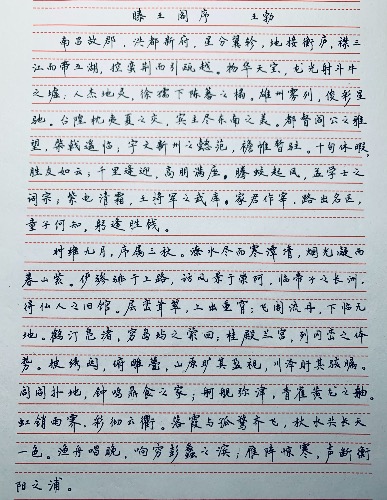 滕王阁序 王勃
南昌故郡，洪都新府，星分翼轸，地接衡庐，襟三
江而带五湖，控蛮荆而引瓯越。物华天宝，龙光射斗牛
之墟；人杰地灵，徐孺下陈蕃之榻。雄州雾列，俊彩星
驰。台隍枕夷夏之交，宾主尽东南之美。都督阎公之雅
望，棨戟遥临；宇文新州之懿范，襜帷暂驻。十旬休暇，
胜友如云；千里逢迎，高朋满座。腾蛟起凤，孟学士之
词宗；紫电清霜，王将军之武库。家君作宰，路出名区，
童子何知，躬逢胜饯。
时维九月，序属三秋。潦水尽而寒潭清，烟光凝而
暮山紫。俨骖騑于上路，访风景于崇阿，临帝子之长洲，
得仙人之旧馆。层峦耸翠，上出重霄；飞阁流丹，下临无
地。鹤汀凫渚，穷岛屿之萦回；桂殿兰宫，列冈峦之体
势。披绣闼，俯雕甍，山原旷其盈视，川泽盱其骇瞩。
闾阎扑地，钟鸣鼎食之家；舸舰弥津，青雀黄龙之舳。
虹销雨霁，彩彻云衢。落霞与孤鹜齐飞，秋水共长天
一色。渔舟唱晚，响穷彭蠡之滨；雁阵惊寒，声断衡
阳之浦。